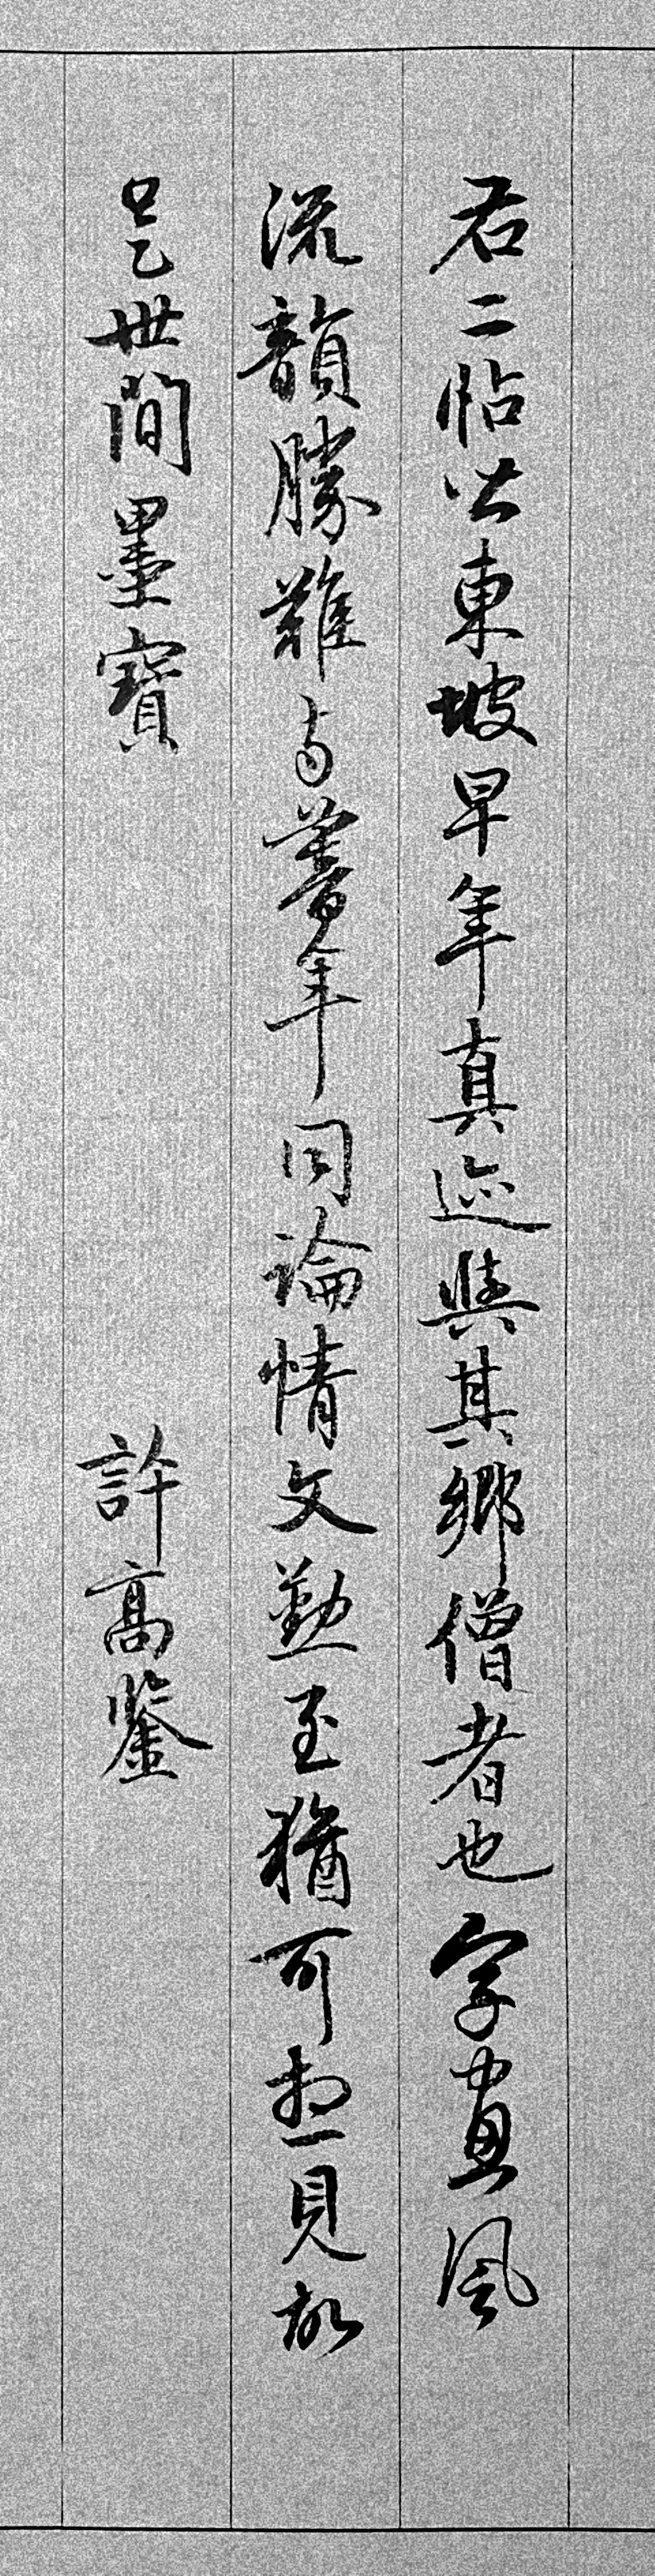 右二帖蓋東坡早年真迹與其鄉僧者也字畫風
流韻勝難与暮年同論情文勤至猶可想見故
是世間墨寶 許高鑒